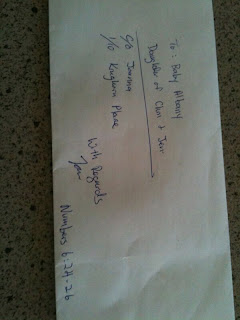 To: Baby Albany
Daughter of Chini & Jer
C/o Jimisha
1/10 Kinghorn Place
With Regards
Numbers 6:24-26